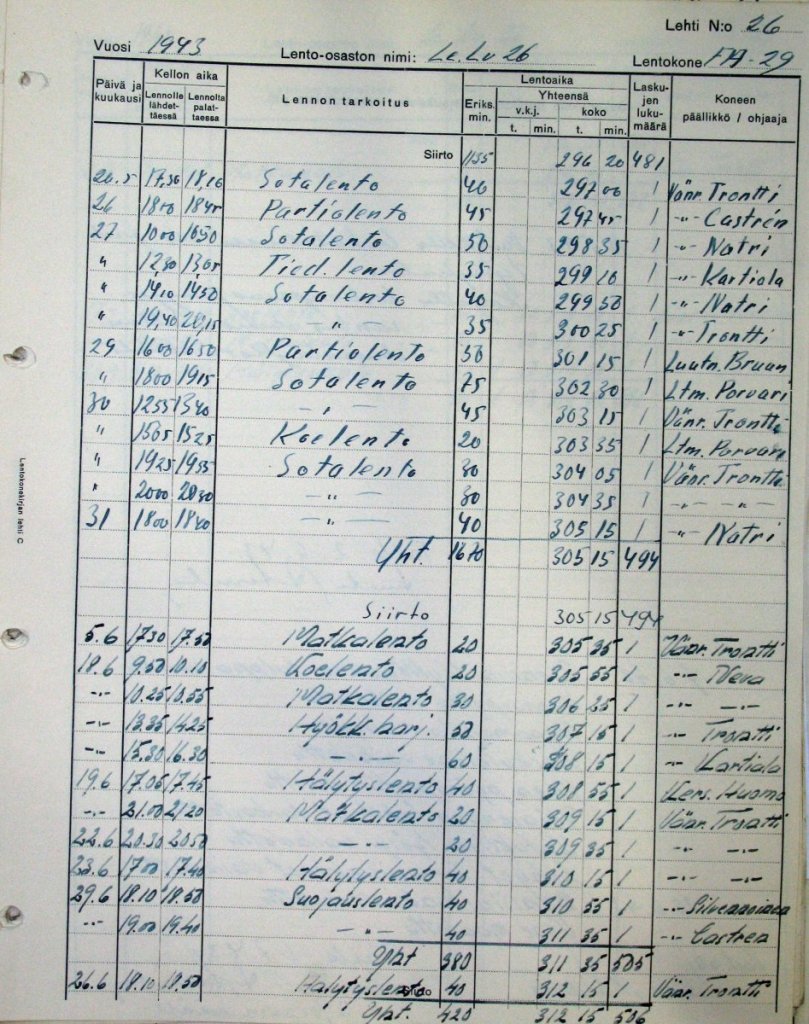 Lehti N:o 26
Vuosi 1943 Lento-osaston nimi: Le.Lv 26 Lentokone FA-29
Päivä ja kuukausi Kellon aika Lennolle lähdettäessä Lennolta palattaessa Lennon tarkoitus Lentoaika Eriks. min. Yhteensä v.k.j. t. min. koko t. min. Laskujen lukumäärä Koneen päällikkö / ohjaaja
Siirto 1155 296 20 481
26.5 17.30 18.10 Sotalento 40 297 00 1 Vänr. Trontti
26 1800 1845 Partiolento 45 297 45 1 -"- Castrén
27 1000 1050 Sotalento 50 298 35 1 -"- Natri
" 1230 1305 Tied. lento 35 299 10 1 -"- Kartiola
" 1410 1450 Sotalento 40 299 50 1 -"- Natri
" 19,40 20,15 -"- 35 300 25 1 -"- Trontti
29 1600 1650 Partiolento 50 301 15 1 Luutn. Bruun
" 1800 1915 Sotalento 75 302 30 1 Ltm. Porvari
30 1255 1340 -"- 45 303 15 1 Vänr. Trontti
" 1505 1525 Koelento 20 303 35 1 Ltm. Porvari
" 1925 1955 Sotalento 30 304 05 1 Vänr. Trontti
" 2000 2030 -"- 30 304 35 1 -"- -"-
31 1800 1840 -"- 40 305 15 1 -"- Natri
Yht. 1670 305 15 494
Siirto 305 15 494
5.6 17.30 17.50 Matkalento 20 305 35 1 Vänr. Trontti
18.6 9.50 10.10 Koelento 20 305 55 1 -"- Neva
-"- 10.25 10.55 Matkalento 30 306 25 1 -"- -"-
-"- 13.35 14.25 Hyökk. harj. 50 307 15 1 -"- Trontti
-"- 15.30 16.30 -"- 60 308 15 1 -"- Kartiola
19.6 17.05 17.45 Hälytyslento 40 308 55 1 Kers. Huomo
-"- 21.00 21.20 Matkalento 20 309 15 1 Vänr. Trontti
22.6 20.30 20.50 -"- 20 309 35 1 -"- -"-
23.6 17.00 17.40 Hälytyslento 40 310 15 1 -"- -"-
29.6 18.10 18.50 Suojauslento 40 310 55 1 -"- Silvennoinen
-"- 19.00 19.40 -"- 40 311 35 1 -"- Castren
Yht 380 311 35 505
26.6 18.10 18.50 Hälytyslento 40 312 15 1 Vänr. Trontti
Yht. 420 312 15 506
Lentokonekirjan lehti C